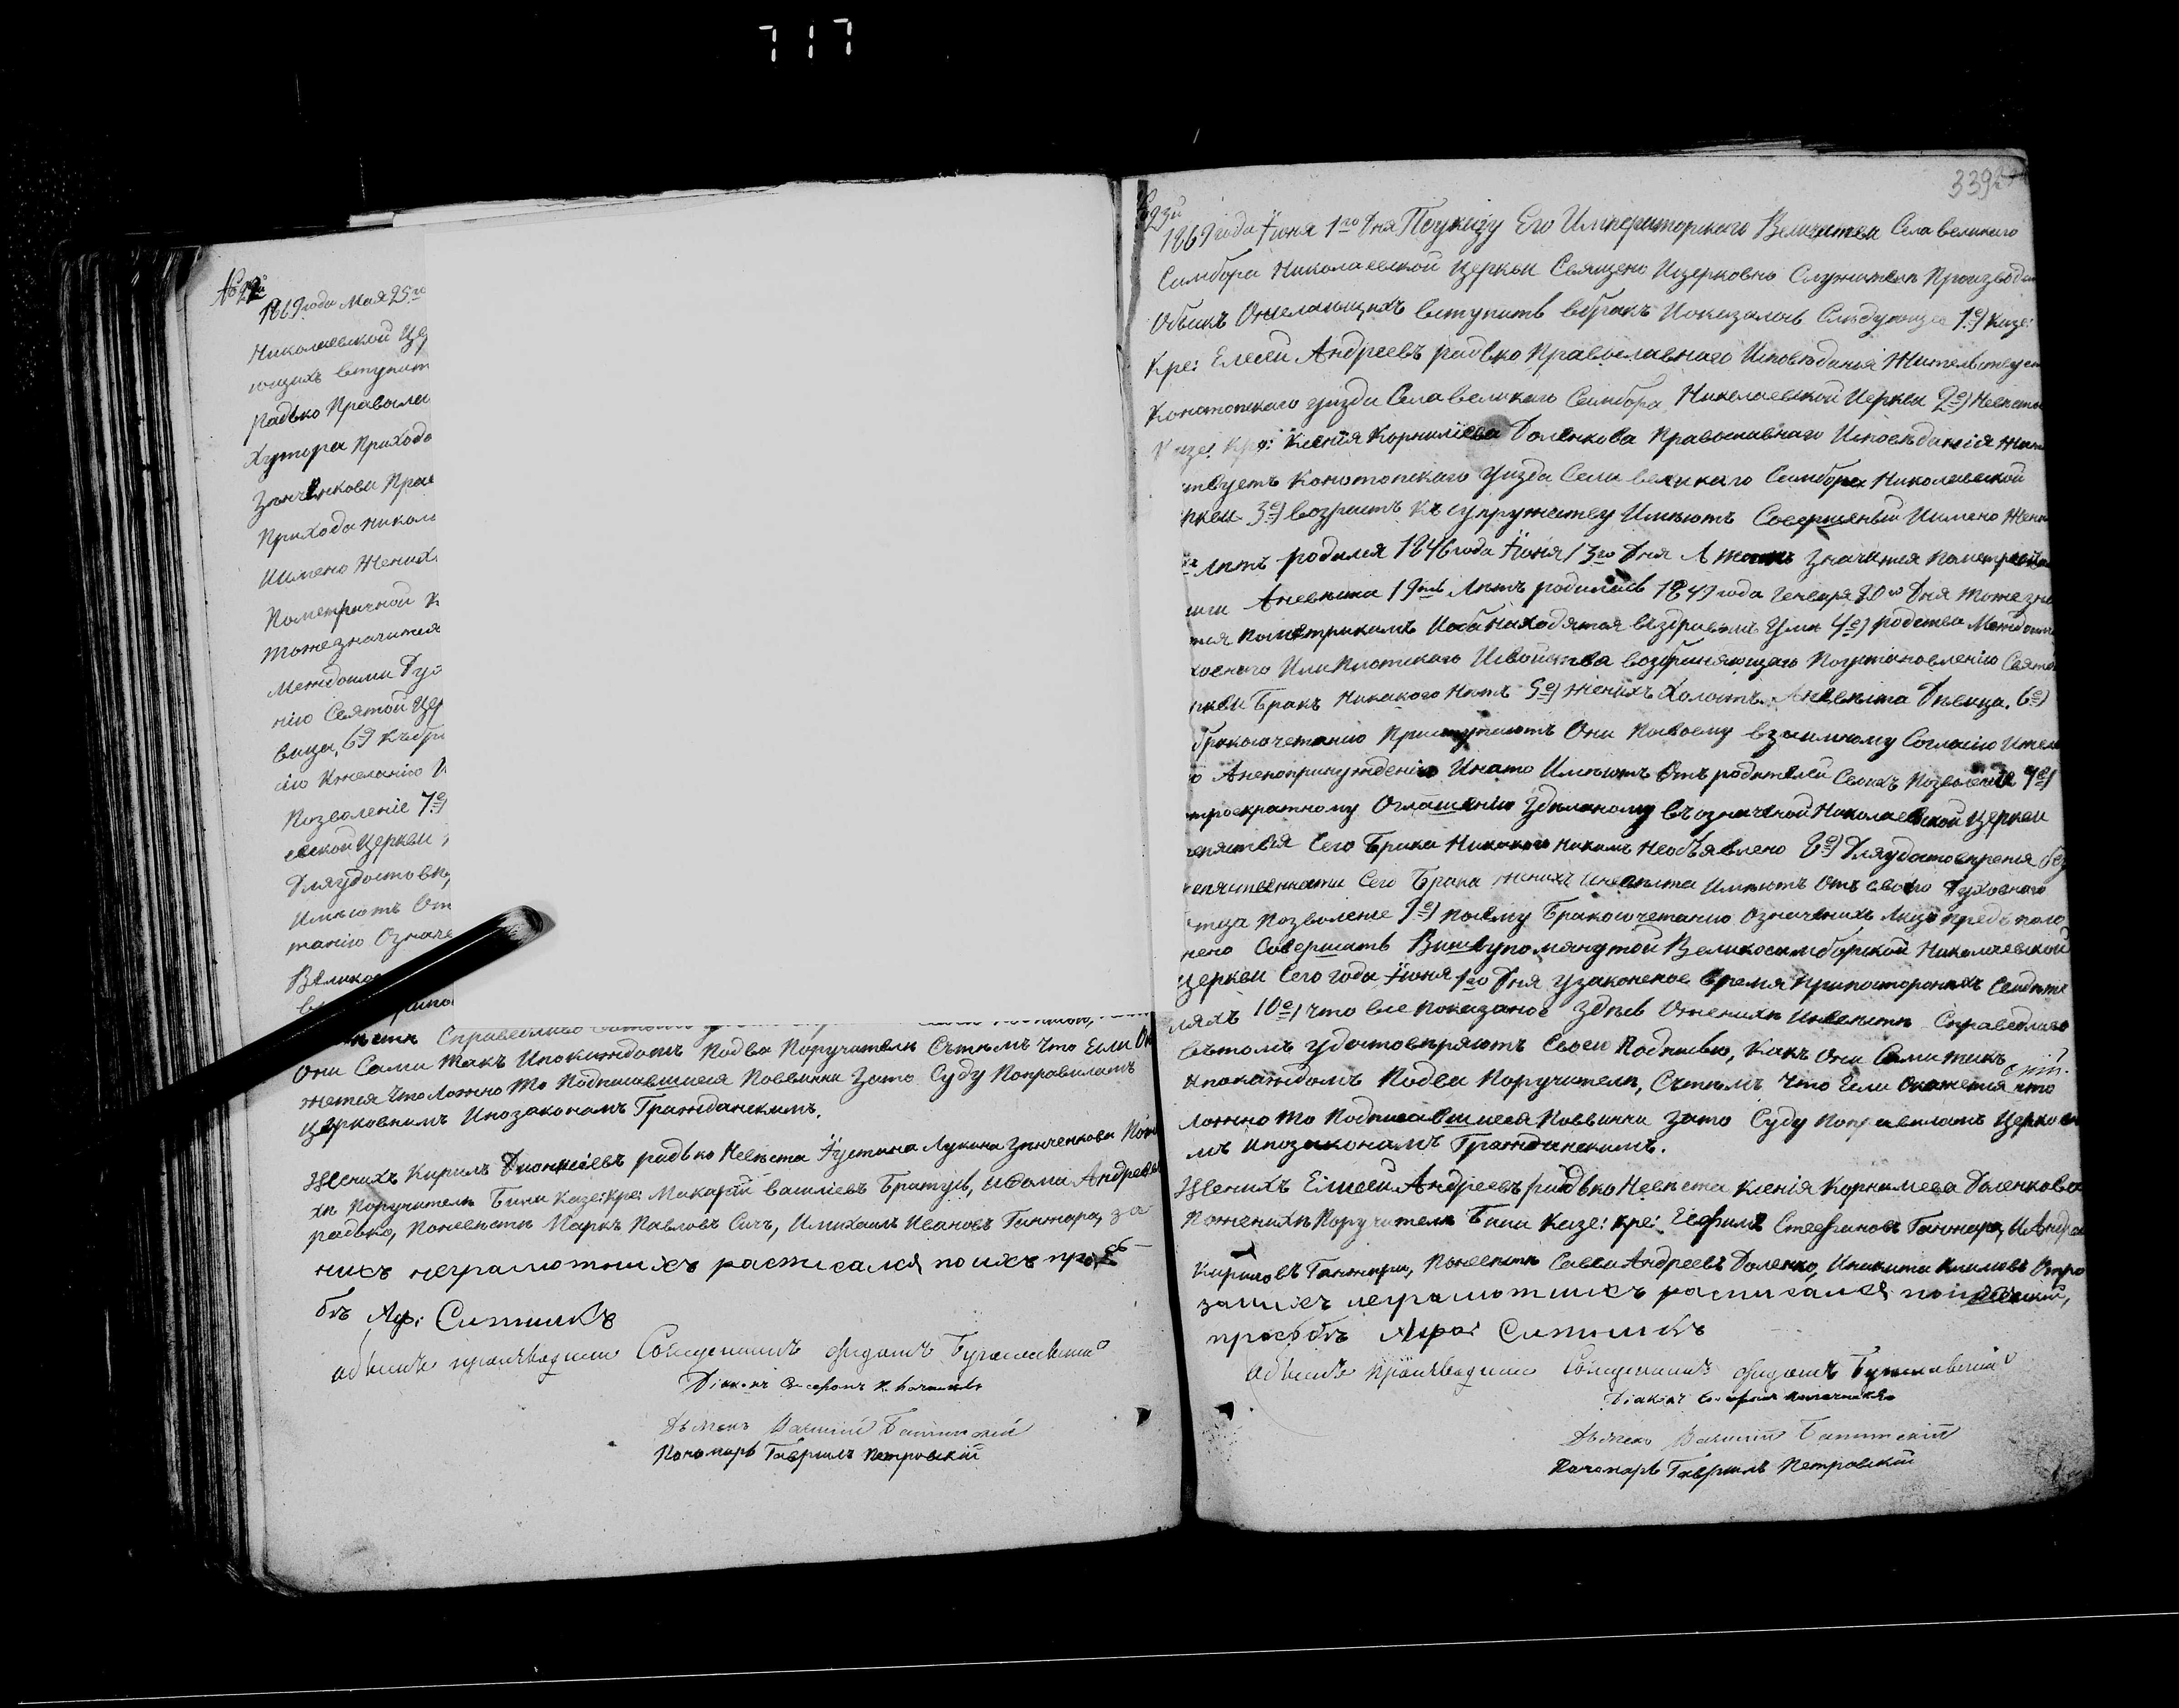 717
№ 22й
1869 года Мая 25го
Николаевской Це
ющихъ вступит
Радько Правосла
Хутора Прихода
Зинченкова Прав
Прихода Никол
Иимено Жених
Пометричной К
тоже значится
Междоими Дух
нію Святой Цер
вица, 6е) Къбр
сію Ижеланію И
Позволеніе 7е)
евской Церкви
Дляудостовѣ
Имѣютъ От
танію Означе
Великос
Справедливо
Они Сами такъ Ипокаждомъ Подва Поручителя Сътѣмъ Что Если Ок
жется Что Ложно То Подписавшиеся Повинни Зато Суду Поправиламъ
Церковнимъ Ипозаконамъ Гражданскимъ.
Женихъ Кирилъ Дионисіевъ радько Невѣста Іустина Лукина Зинченкова Поже
хѣ Поручители Били Казе: Кре: Макарій Василіевъ Братусь, Ифома Андреевъ
радько, Поневѣстѣ Марко Павловъ Сичъ, Имихаилъ Ивановъ Ганжара, за
нихъ неграмотнихъ расписался по ихъ прозь
бѣ Афо: Ситникъ
Обыскъ производили Священникъ Ѳедотъ Бугославскій
Діаконъ
Дьячекъ Василій
Пономарь Гаврилъ Петровскій
339
№ 23й
1869 года Іюня 1го Дня Поуказу Его Императорскаго Величества Села великаго
Самбора Николаевской Церкви Священо Ицерковно Служители Производили
Обыскъ Ожелающихъ вступить вбракъ Иоказалось Слѣдующее 1е) Казе:
Кре: Елисей Андреевъ радько Православнаго Исповѣданія Жительствует
Конотопскаго уѣзда Села великаго Самбора Николаевской Церкви 2е) Невѣста
Казе: Кре: Ксенія Корниліева Доленкова Православнаго Исповѣданія Жит
ствуетъ Конотопскаго Уѣзда Села великаго Самбора Николаевской
ркви 3е) возрастъ Къ супружеству Имѣютъ Совершеный Иимено Жени
Лѣтъ родился 1846 года Іюня 13го Дня Атакъ Значится Пометрической
ниги Аневѣста 19ть Лѣтъ родилась 1849 года Генваря 20го Дня Тоже зна
тся пометрикамъ Иоба находятся въздравомъ Умѣ 4е) родства Междоими
ховнаго Или Плотскаго Исвойства возбраняющаго Поустановленію Свято
ркви Бракъ Никакого Нѣтъ 5е) Женихъ Холостъ Аневѣста Дѣвица. 6е)
бракосочетанію Приступаютъ Они Посвоему взаимному Согласію Ижела
ю Анепопринужденію Инато Имѣютъ Отъ родителей Своихъ Позволеніе 7е)
троекратному Оглашенію Здѣланому въозначеной Николаевской Церкви
репятствія Сего Брака Никакого никемъ Необъявлено 8е) Дляудостовѣренія без
репятственности Сего Брака женихъ Иневѣста Имѣютъ Отъ своего Духовнаго
тца Позволеніе 9е) Посему Бракосочетанію Означенихъ Лицъ предъполо
жено Совершить Ввишеупомянутой Великосамборской Николаевской
Церкви Сего года Іюня 1го Дня Узаконеное Время Припостороннихъ Свидѣте
ляхъ 10е) Что все показаное Здѣсь Оженихѣ Иневѣстѣ Справедливо
Вътомъ Удостовѣряютъ Своею Подписью, Какъ Они Сами такъ
Ипокаждомъ Подва Поручителя, Сътѣмъ Что Если Окажется Что
Ложно То Подписавшиеся Повинни Зато Суду Поправиламъ Церковни
мъ Ипозаконамъ Гражданскимъ.
Женихъ Елисей Андреевъ радько Невѣста Ксенія Корнилиева Доленкова
Поженихѣ Поручители Били Казе: Кре: Стефановъ Ганжара, ИАндре
Кириловъ Ганжара, Поневѣстѣ Савва Андреевъ Доленко, Иникита Климовъ
за нихъ неграмотнихъ расписался поих
прозьбѣ Афо: Ситникъ
Обыскъ производили Священникъ Ѳедотъ Бугославскій
Діаконъ
Дьячекъ Василій
Пономарь Гаврилъ Петровскій